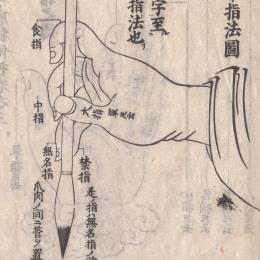 指法圖
字至
指法也
食指
中指
大指
無名指
爪肉ノ間ニ管ヲ置
禁指
是ノ指ハ無名指ノ